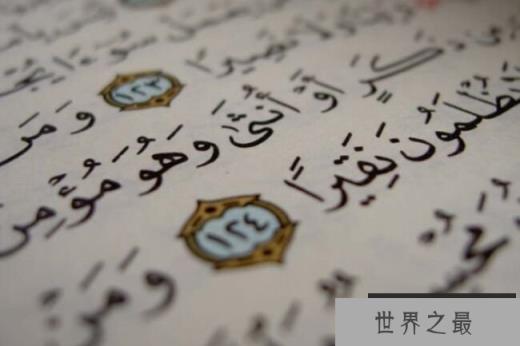 سُوٓءًا يُجْزَ
وَلَا نَصِيرًا ١٢٣ وَمَن
ذَكَرٍ أَوْ أُنثَىٰ وَهُوَ مُؤْمِنٌ
يُظْلَمُونَ نَقِيرًا ١٢٤ وَمَنْ
世界之最